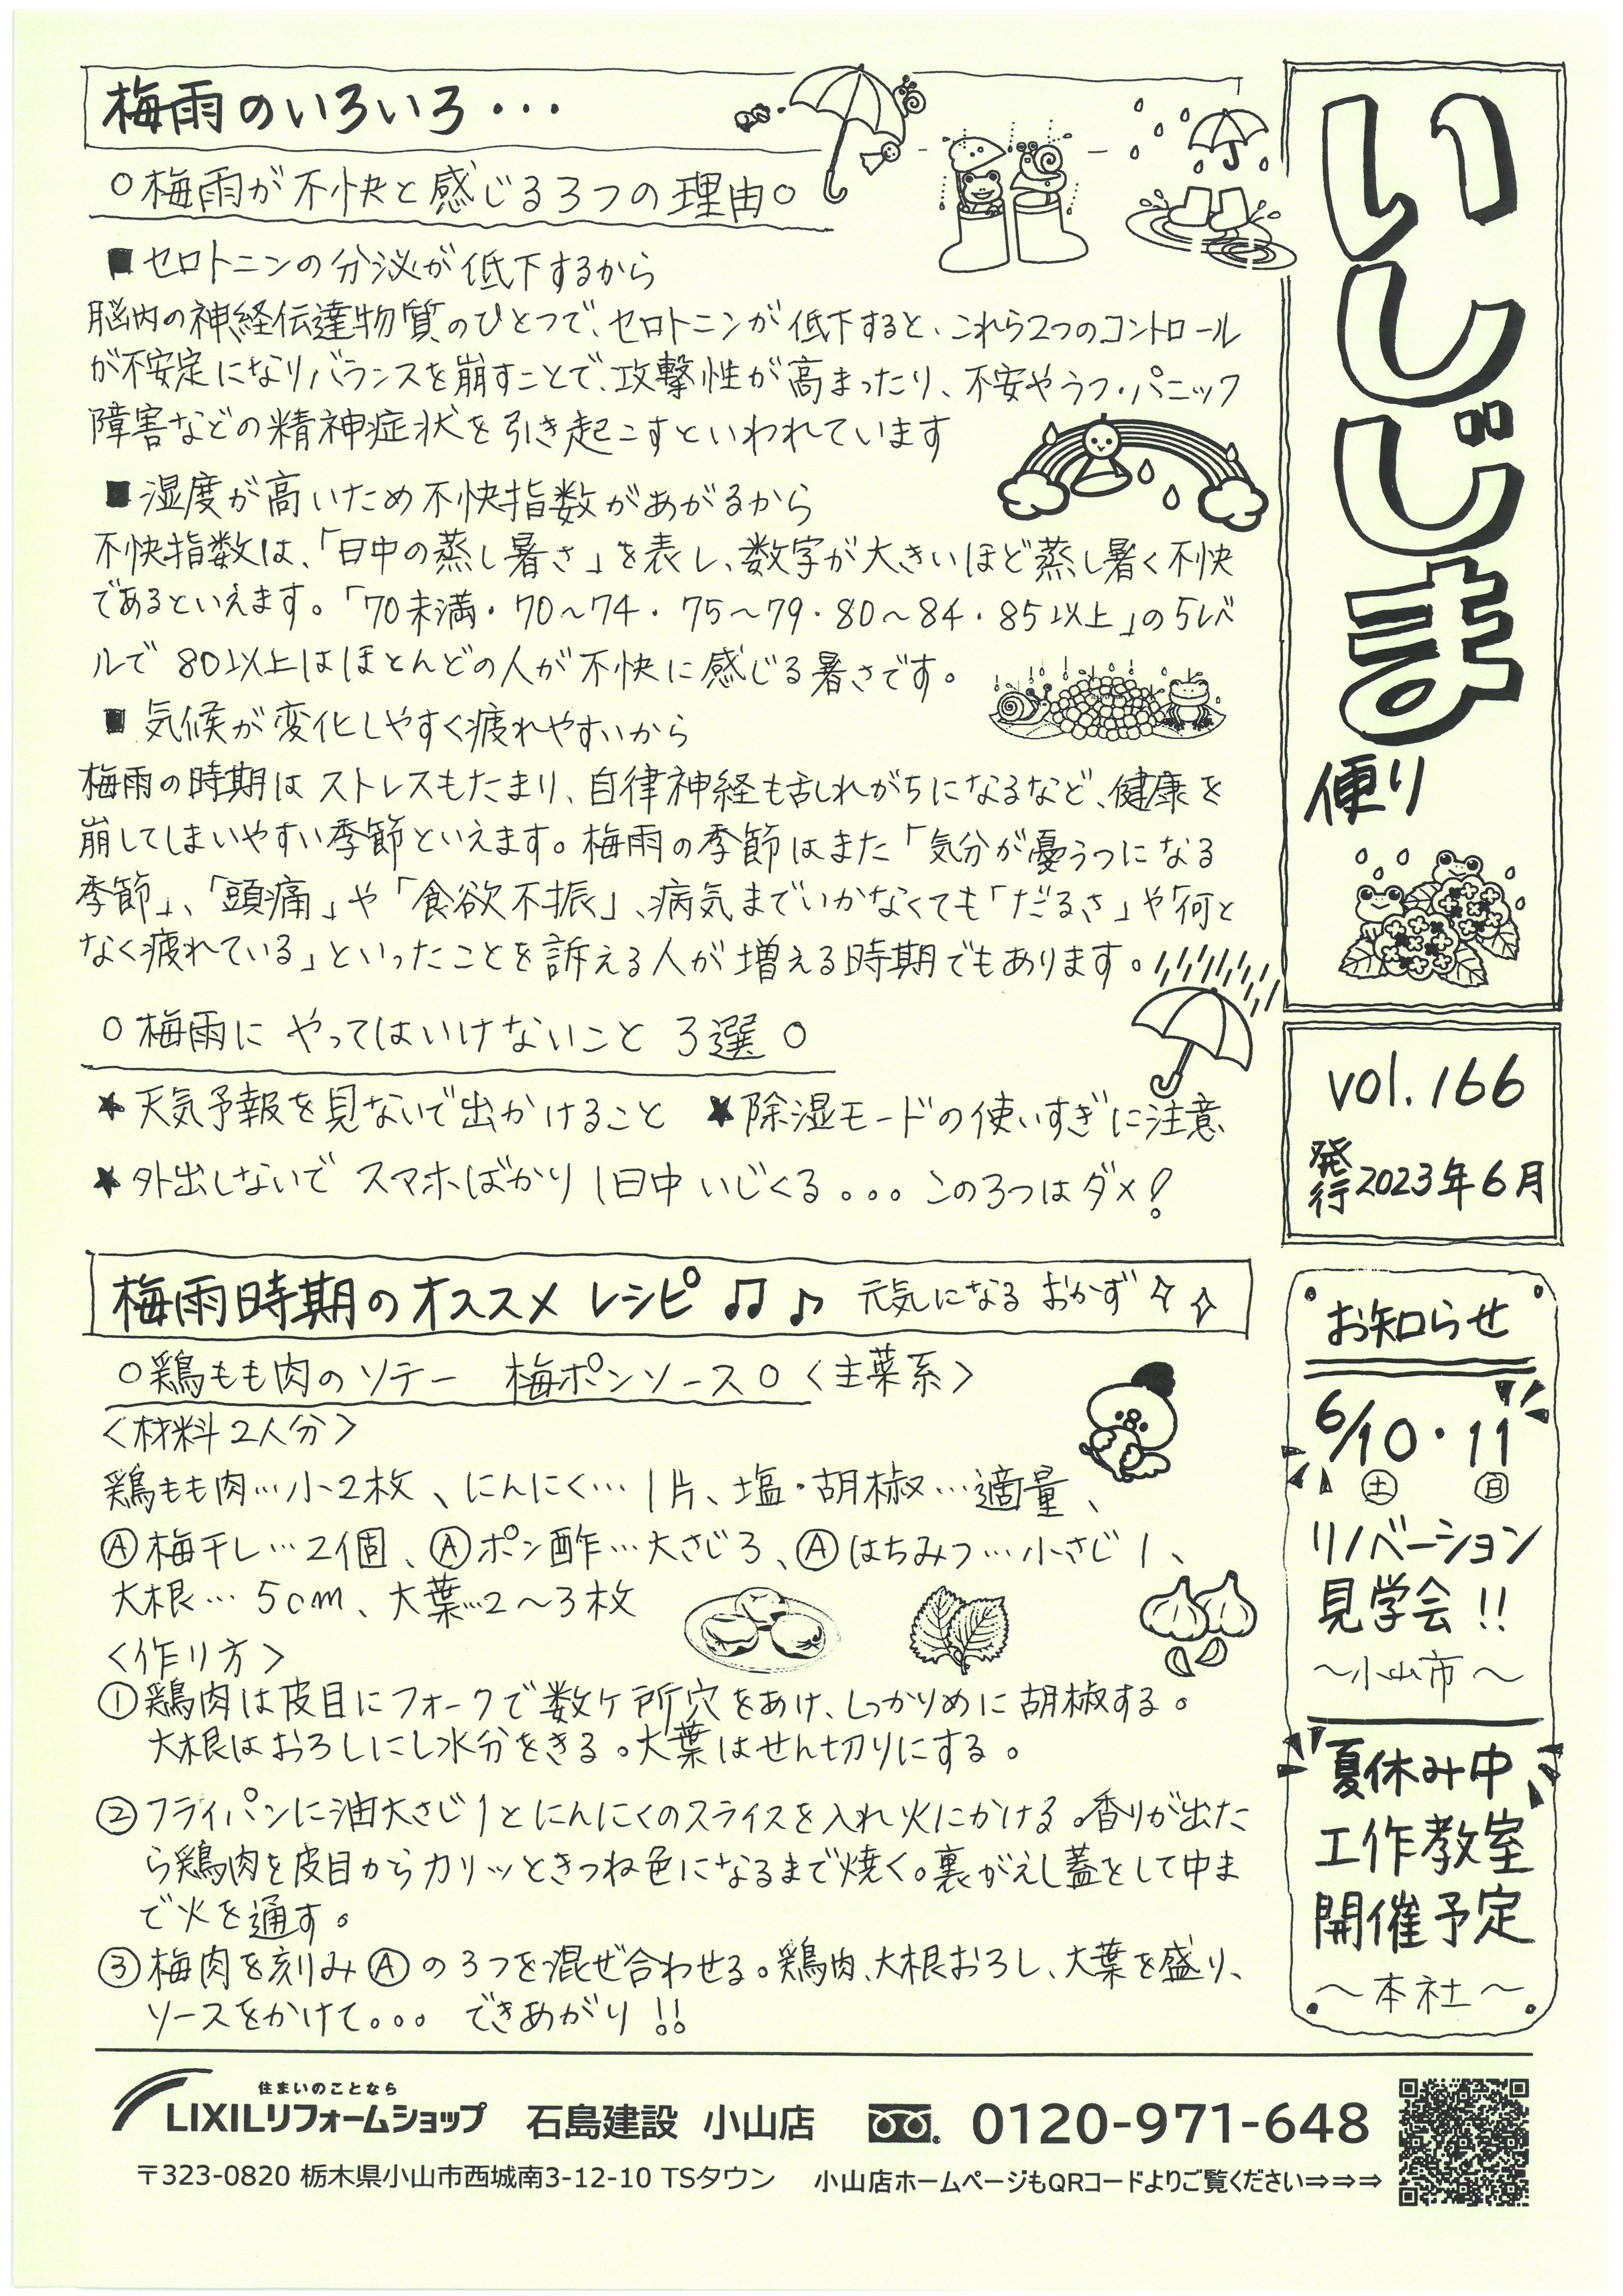 梅雨のいろいろ・・・
○梅雨が不快と感じる3つの理由○
■セロトニンの分泌が低下するから
脳内の神経伝達物質のひとつで、セロトニンが低下すると、これら2つのコントロール
が不安定になりバランスを崩すことで、攻撃性が高まったり、不安やうつ・パニック
障害などの精神症状を引き起こすといわれています
■湿度が高いため不快指数があがるから
不快指数は、「日中の蒸し暑さ」を表し、数字が大きいほど蒸し暑く不快
であるといえます。「70未満・70～74・75～79・80～84・85以上」の5レベ
ルで80以上はほとんどの人が不快に感じる暑さです。
■気候が変化しやすく疲れやすいから
梅雨の時期はストレスもたまり、自律神経も乱れがちになるなど、健康を
崩してしまいやすい季節といえます。梅雨の季節はまた「気分が憂うつになる
季節」、「頭痛」や「食欲不振」、病気までいかなくても「だるさ」や「何と
なく疲れている」といったことを訴える人が増える時期でもあります。
○梅雨にやってはいけないこと 3選○
★天気予報を見ないで出かけること ★除湿モードの使いすぎに注意
★外出しないでスマホばかり1日中いじくる。。。この3つはダメ!
梅雨時期のオススメレシピ♫♪ 元気になるおかず✧✧
○鶏もも肉のソテー 梅ポンソース○〈主菜系〉
〈材料2人分〉
鶏もも肉…小2枚、にんにく…1片、塩・胡椒…適量、
Ⓐ梅干し…2個、Ⓐポン酢…大さじ3、Ⓐはちみつ…小さじ1、
大根…5cm、大葉…2～3枚
〈作り方〉
①鶏肉は皮目にフォークで数ヶ所穴をあけ、しっかりめに胡椒する。
大根はおろしにし水分をきる。大葉はせん切りにする。
②フライパンに油大さじ1とにんにくのスライスを入れ火にかける。香りが出た
ら鶏肉を皮目からカリッときつね色になるまで焼く。裏がえし蓋をして中ま
で火を通す。
③梅肉を刻みⒶの3つを混ぜ合わせる。鶏肉、大根おろし、大葉を盛り、
ソースをかけて。。。できあがり!!
いしじま
便り
vol.166
発行2023年6月
お知らせ
6/10・11
㊏ ㊐
リノベーション
見学会!!
～小山市～
夏休み中
工作教室
開催予定
～本社～
住まいのことなら
LIXILリフォームショップ 石島建設 小山店 0120-971-648
〒323-0820 栃木県小山市西城南3-12-10 TSタウン 小山店ホームページもQRコードよりご覧ください⇒⇒⇒